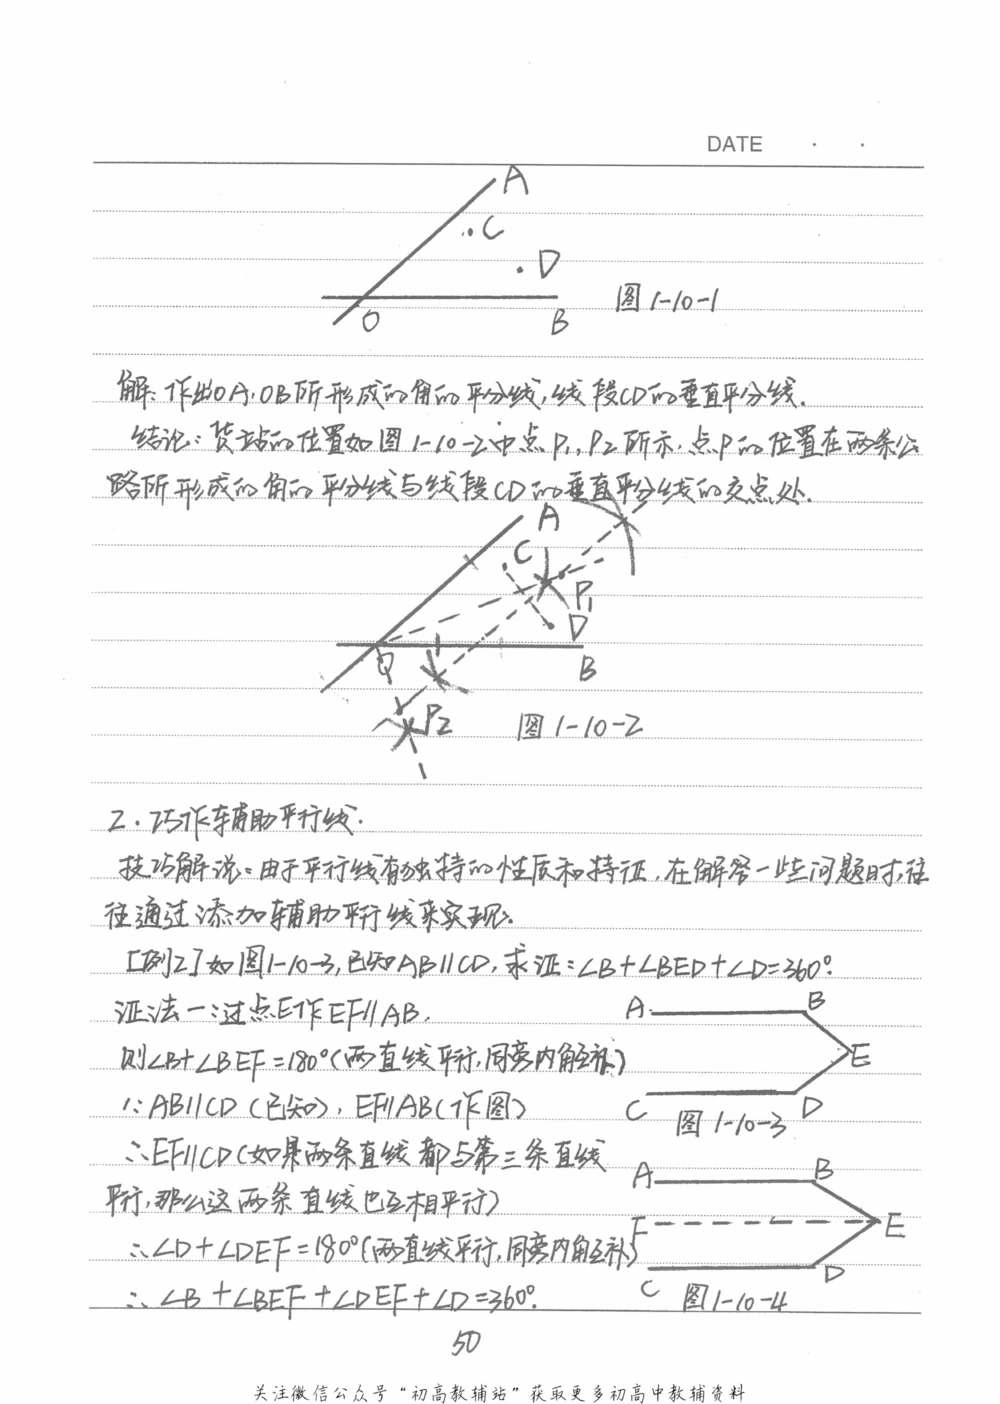 DATE · ·
A
C
D
O
B
图1-10-1
解:作出OA,OB所形成的角的平分线,线段CD的垂直平分线.
结论:货站的位置如图1-10-2中点P₁,P₂所示.点P的位置在两条公
路所形成的角的平分线与线段CD的垂直平分线的交点处.
A
C
P₁
D
O
B
P₂
图1-10-2
2.巧作辅助平行线.
技巧解说:由于平行线有独特的性质和特征,在解答一些问题时,往
往通过添加辅助平行线来实现.
[例2]如图1-10-3,已知AB∥CD,求证:∠B+∠BED+∠D=360°.
证法一:过点E作EF∥AB,
则∠B+∠BEF=180°(两直线平行,同旁内角互补)
∵AB∥CD(已知),EF∥AB(作图)
∴EF∥CD(如果两条直线都与第三条直线
平行,那么这两条直线也互相平行)
∴∠D+∠DEF=180°(两直线平行,同旁内角互补)
∴∠B+∠BEF+∠DEF+∠D=360°.
A
B
E
C
D
图1-10-3
A
B
F
E
C
D
图1-10-4
50
关注微信公众号“初高教辅站”获取更多初高中教辅资料